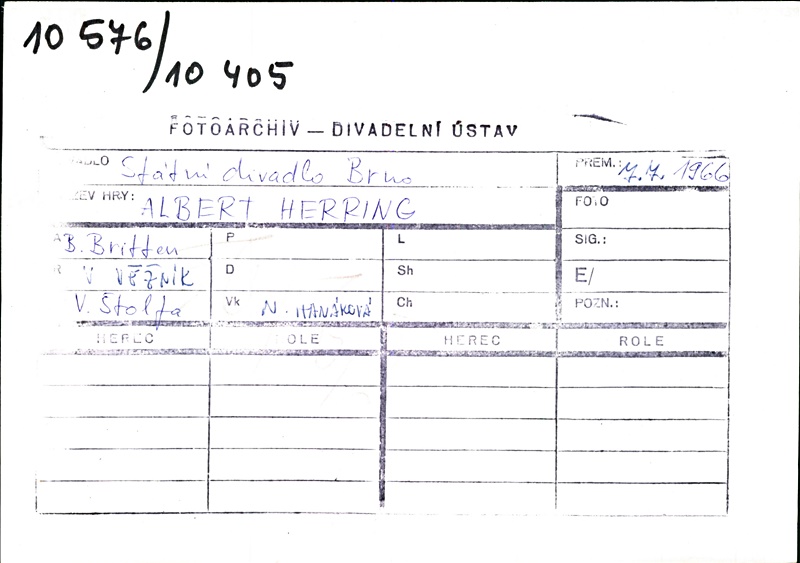 10 576/
10 405
FOTOARCHIV — DIVADELNÍ ÚSTAV
DLO Státní divadlo Brno PREM.: 7.7. 1966
EV HRY: ALBERT HERRING FOTO
A B. Britten P L SIG.:
R V VĚŽNÍK D Sh E/
V. Štolfa Vk N. HANÁKOVÁ Ch POZN.:
HEREC OLE HEREC ROLE